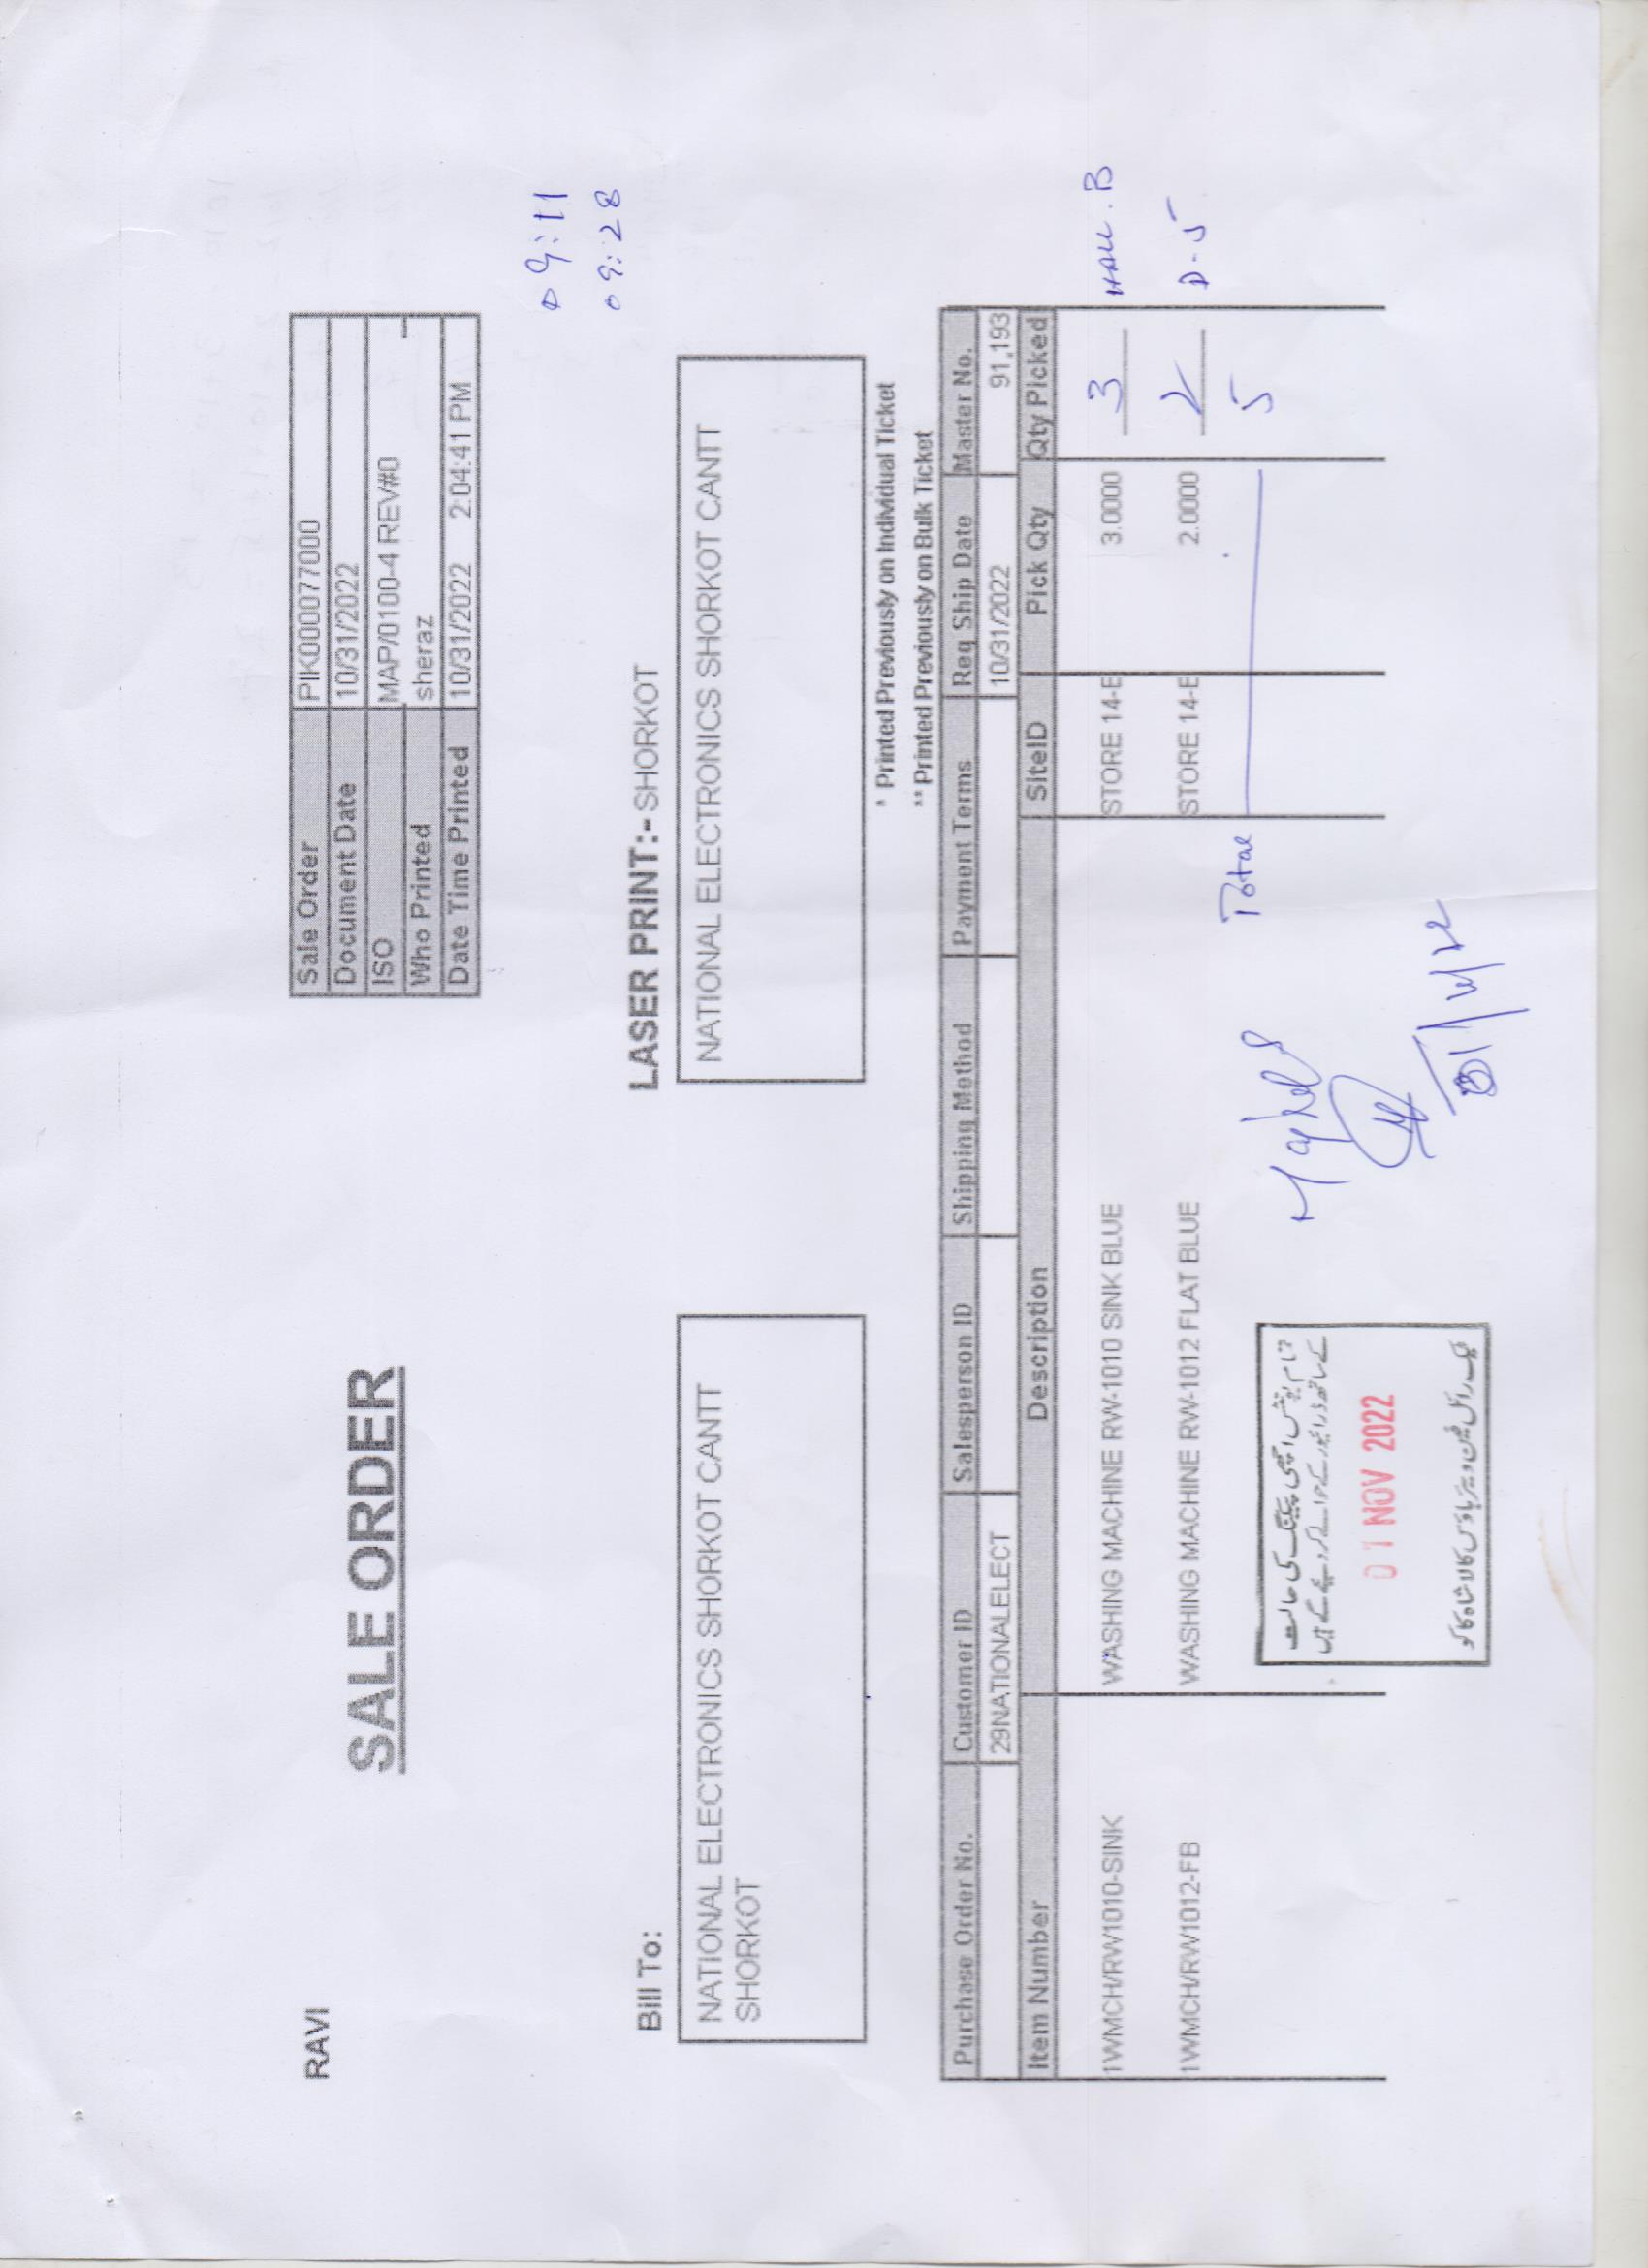 RAVI
SALE ORDER
Sale Order PIK000077000
Document Date 10/31/2022
ISO MAP/0100-4 REV#0
Who Printed sheraz
Date Time Printed 10/31/2022 2:04:41 PM
09:11
09:28
Bill To:
NATIONAL ELECTRONICS SHORKOT CANTT
SHORKOT
LASER PRINT:- SHORKOT
NATIONAL ELECTRONICS SHORKOT CANTT
* Printed Previously on Individual Ticket
** Printed Previously on Bulk Ticket
Purchase Order No. Customer ID Salesperson ID Shipping Method Payment Terms Req Ship Date Master No.
29NATIONALELECT 10/31/2022 91,193
Item Number Description SiteID Pick Qty Qty Picked
1WMCH/RW1010-SINK WASHING MACHINE RW-1010 SINK BLUE STORE 14-E 3.0000 3 HALL. B
1WMCH/RW1012-FB WASHING MACHINE RW-1012 FLAT BLUE STORE 14-E 2.0000 2 D-5
Total 5
تمام یونٹس اچھی پیکنگ کی حالت
کے ساتھ ڈرائیور کے حوالے کر دیئے گے ہیں
01 NOV 2022
ٹیک رائل فین ویئر ہاؤس کالا شاہ کاکو